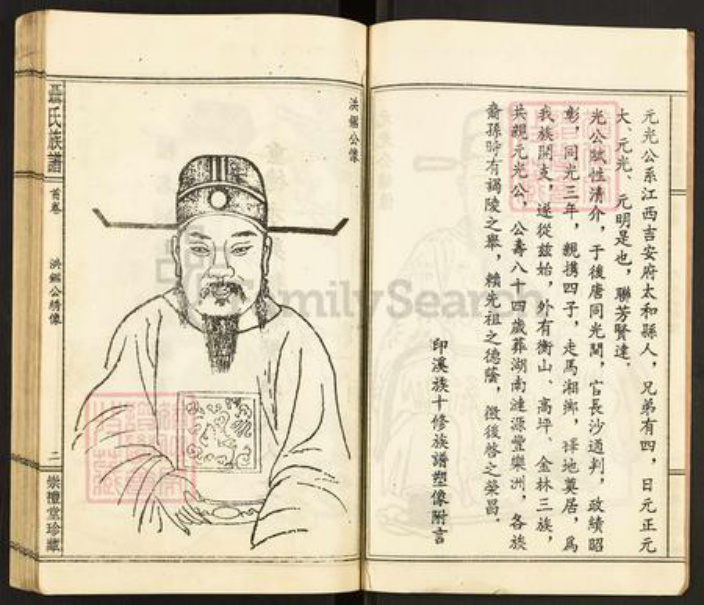 元光公系江西吉安府太和縣人，兄弟有四，日元正元
大、元光、元明是也，聯芳賢達．
光公賦性清介，于後唐同光間，官長沙通判，政績昭
彰，同光三年，親携四子，走馬湘鄉，擇地奠居，爲
我族開支，遂從兹始，外有衡山、高坪、金林三族，
共親元光公，公壽八十四歲葬湖南漣源豐樂洲，各族
裔孫時有謁陵之舉，賴先祖之德蔭，徵後啓之榮昌．
印溪族十修族譜塑像附言
洪鑑公像
聶氏族譜
首卷
洪鑑公綉像
二
崇禮堂珍藏
FamilySearch